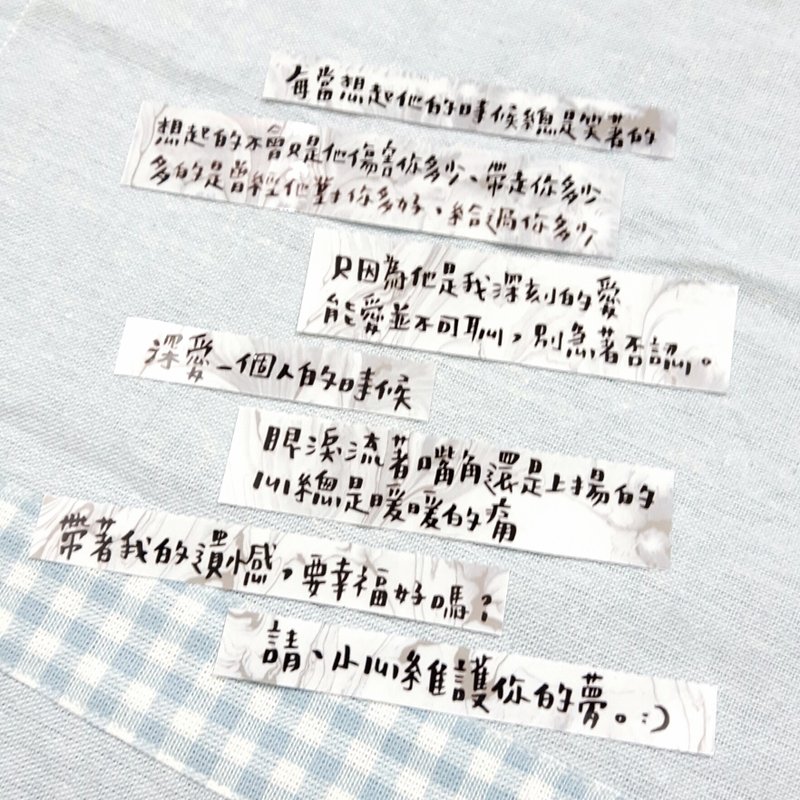 每當想起他的時候總是笑著的
想起的不會只是他傷害你多少、帶走你多少
多的是曾經他對你多好、給過你多少
只因為他是我深刻的愛
能愛並不可恥，別急著否認。
深愛一個人的時候
眼淚流著嘴角還是上揚的
心總是暖暖的痛
帶著我的遺憾，要幸福好嗎？
請、小心維護你的夢。:)